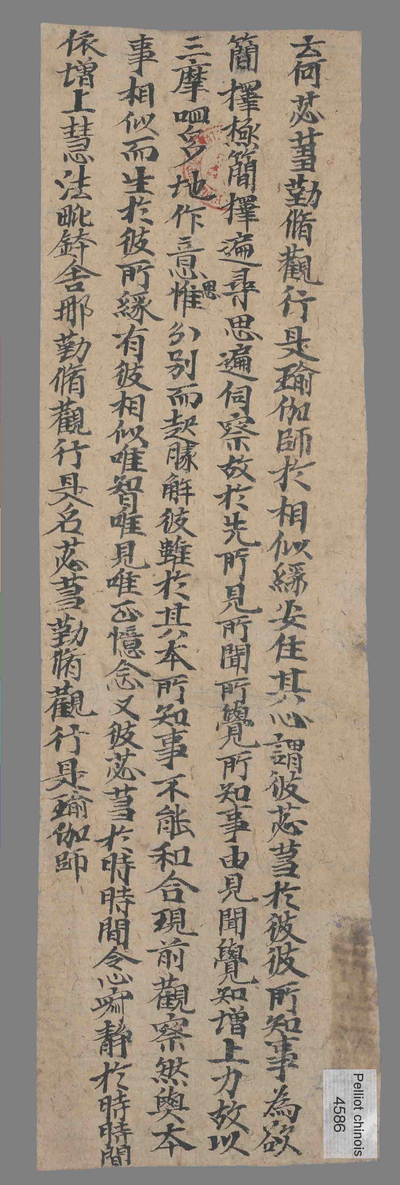 云何苾蒭勤脩觀行是瑜伽師於相似緣安住其心謂彼苾蒭於彼彼所知事為欲
簡擇極簡擇遍尋思遍伺察故於先所見所聞所覺所知事由見聞覺知增上力故以
三摩呬多地作意思惟分別而起勝解彼雖於其本所知事不能和合現前觀察然與本
事相似而生於彼所緣有彼相似唯智唯見唯正憶念又彼苾蒭於時時間令心寂靜於時時間
依增上慧法毗鉢舍那勤脩觀行是名苾蒭勤脩觀行是瑜伽師
Pelliot chinois
4586